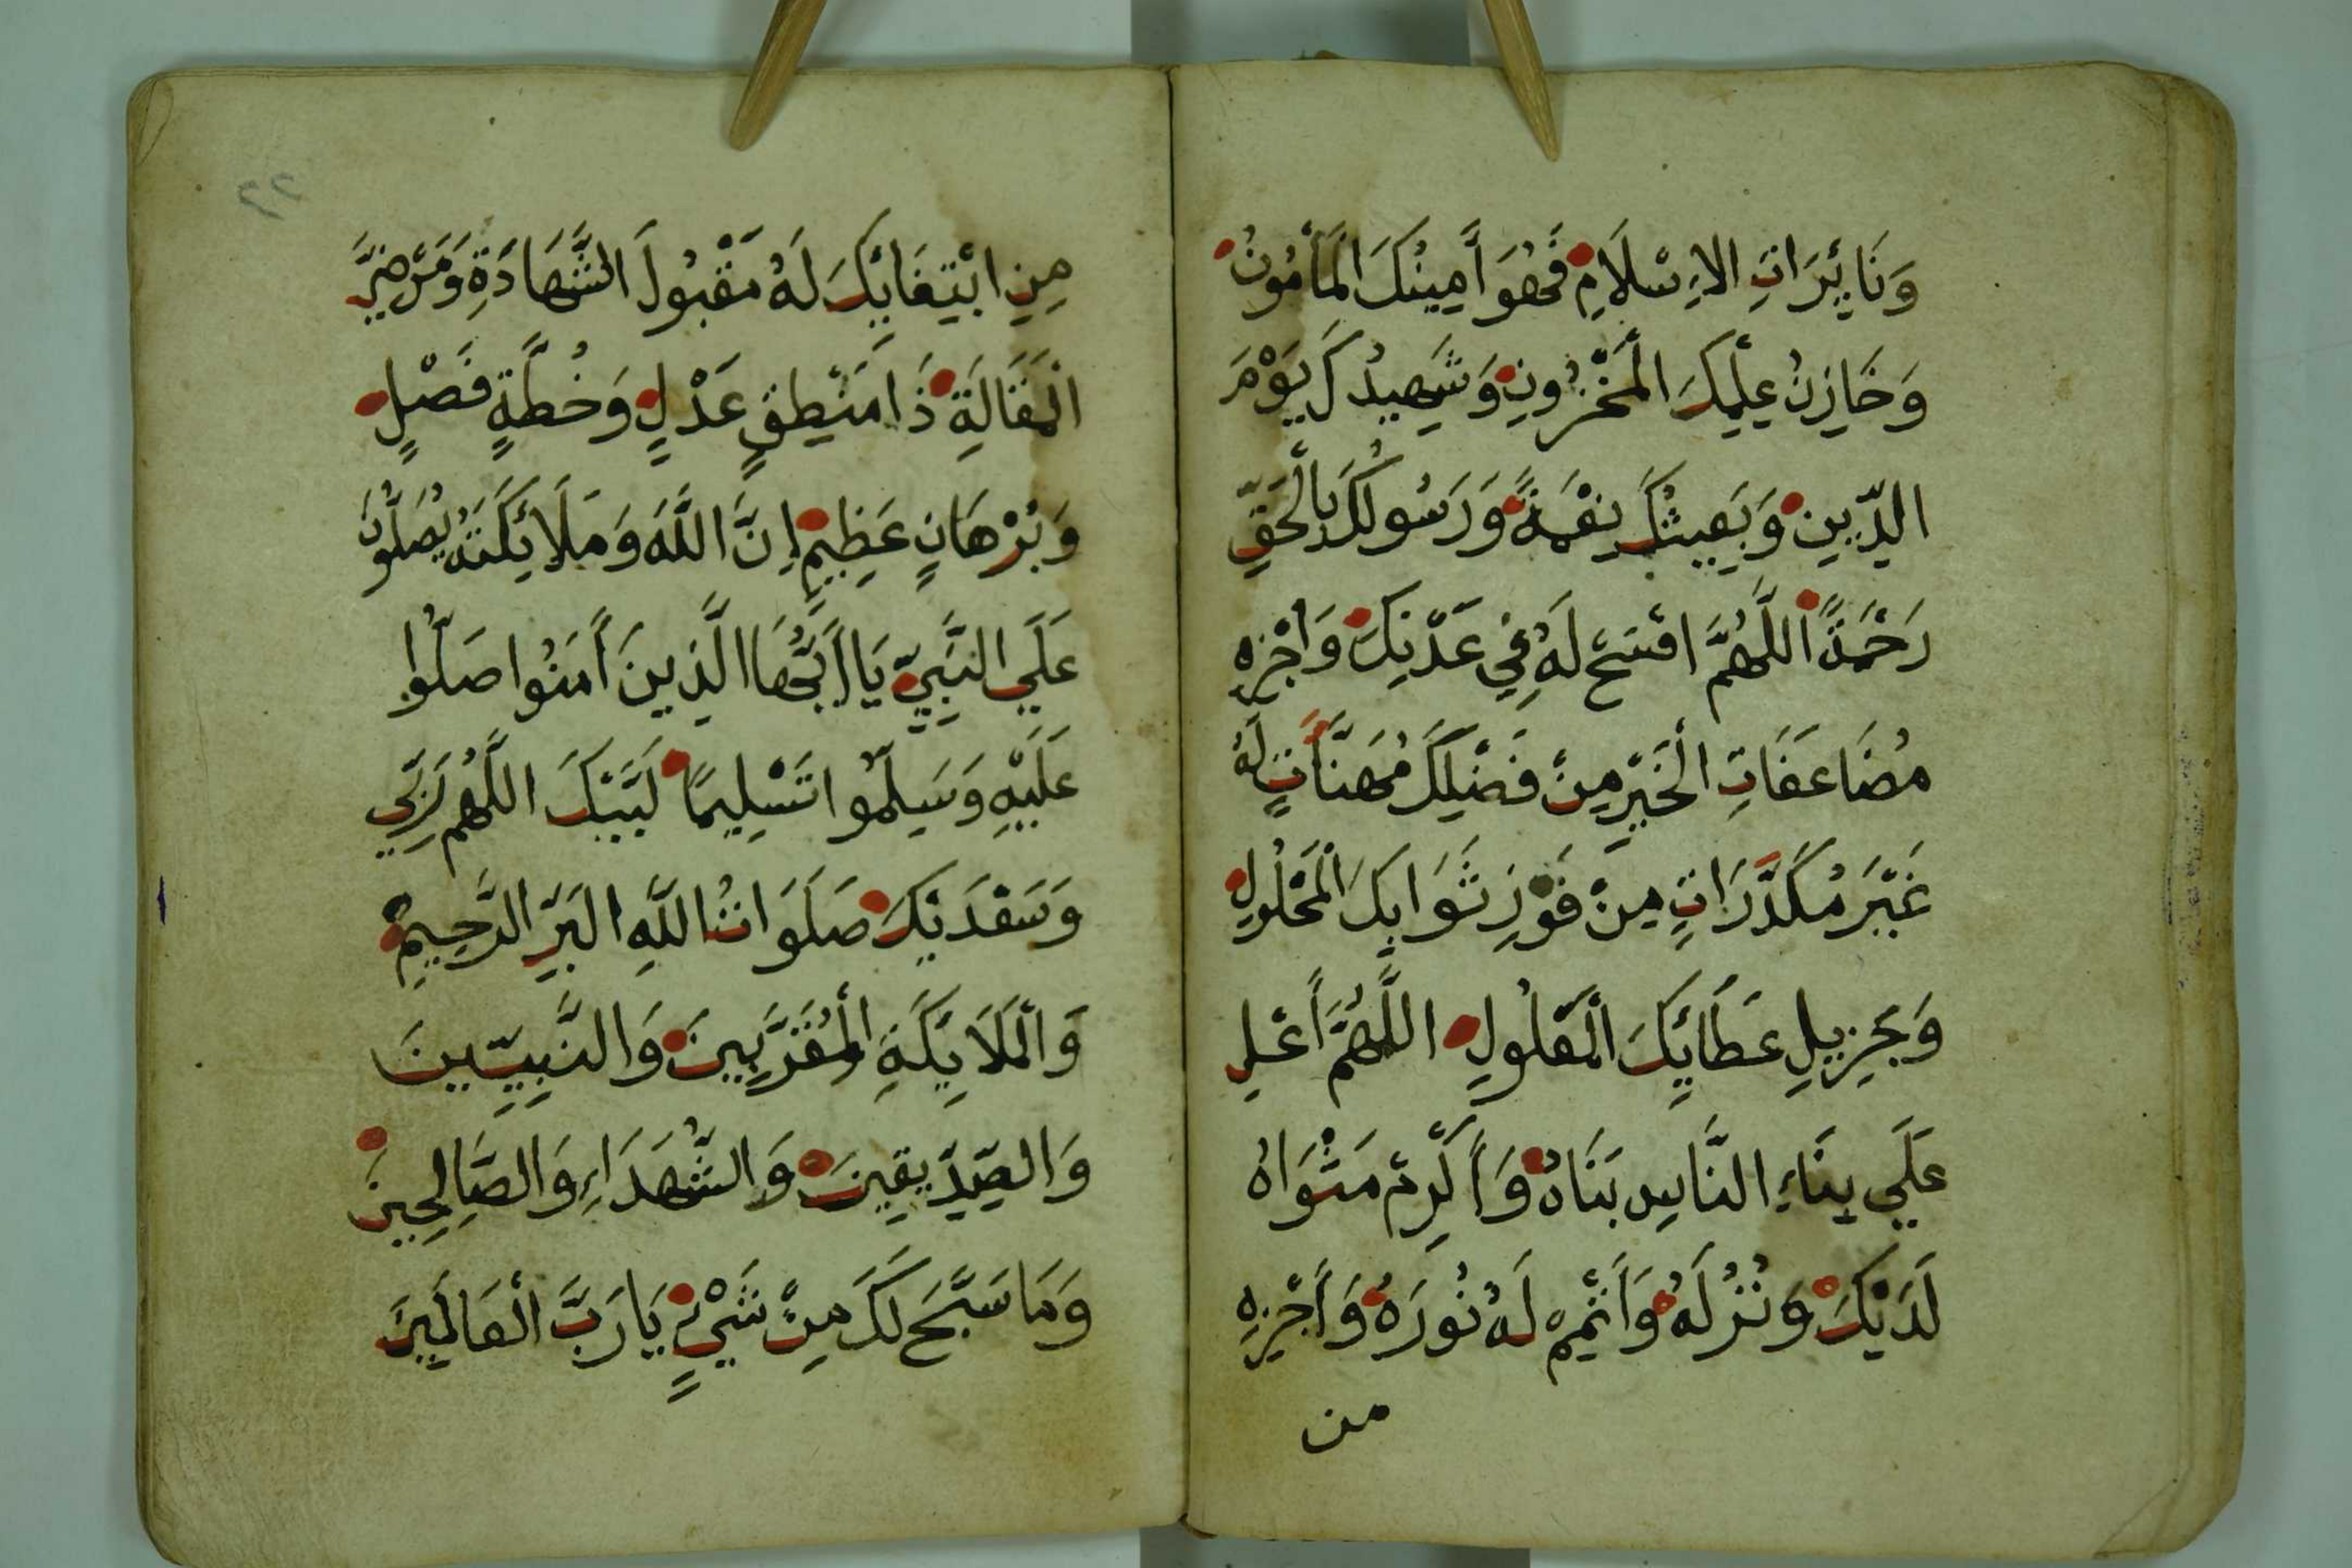 وَنَايِّرَاتِ الاِسْلَامِ فَهُوَ أَمِينُكَ الْمَأْمُونُ
وَخَازِنُ عِلْمِكَ الْمَخْزُونِ وَشَهِيدُكَ يَوْمَ
الدِّينِ وَبَعِيثُكَ نِعْمَةً وَرَسُولُكَ بِالْحَقِّ
رَحْمَةً اللَّهُمَّ افْسَحْ لَهُ فِي عَدْنِكَ وَاجْزِهِ
مُضَاعَفَاتِ الْخَيْرِ مِنْ فَضْلِكَ مُهَنَّأَتٍ لَهُ
غَيْرَ مُكَدَّرَاتٍ مِنْ فَوْزِ ثَوَابِكَ الْمَحْلُولِ
وَجَزِيلِ عَطَائِكَ الْمَعْلُولِ اللَّهُمَّ أَعْلِ
عَلَي بِنَاءِ النَّاسِ بَنَاهُ وَأَكْرِمْ مَثْوَاهُ
لَدَيْكَ وَنُزُلَهُ وَأَتْمِمْ لَهُ نُورَهُ وَأَجْزِهِ
من
٢٢
مِنِ ابْتِغَائِكَ لَهُ مَقْبُولَ الشَّهَادَةِ وَمَرْضِيَّ
الْمَقَالَةِ ذَا مَنْطِقٍ عَدْلٍ وَخُطَّةٍ فَصْلٍ
وَبُرْهَانٍ عَظِيمٍ إِنَّ اللَّهَ وَمَلَائِكَتَهُ يُصَلُّونَ
عَلَي النَّبِيِّ يَا أَيُّهَا الَّذِينَ أَمَنُوا صَلُّوا
عَلَيْهِ وَسَلِّمُوا تَسْلِيمًا لَبَّيْكَ اللَّهُمَّ رَبِّي
وَسَعْدَيْكَ صَلَوَاتُ اللَّهِ الْبَرِّ الرَّحِيمِ
وَالْمَلَايِكَةِ الْمُقَرَّبِينَ وَالنَّبِيِّينَ
وَالصِّدِّيقِينَ وَالشُّهَدَاءِ وَالصَّالِحِينَ
وَمَا سَبَّحَ لَكَ مِنْ شَيْءٍ يَا رَبَّ الْعَالَمِينَ